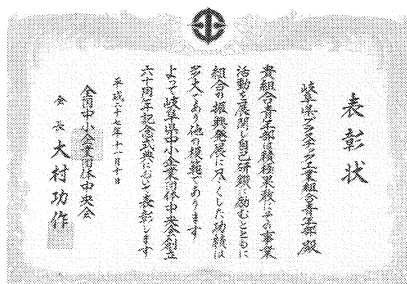 表彰状
岐阜県プラスチック工業組合青年部 殿
貴組合青年部は積極果敢にその事業
活動を展開し自己研鑽に励むとともに
組合の振興発展に尽くした功績は
多大であり他の模範であります
よって岐阜県中小企業団体中央会創立
六十周年記念式典において表彰します
平成二十七年十一月十日
全国中小企業団体中央会
会長 大村功作